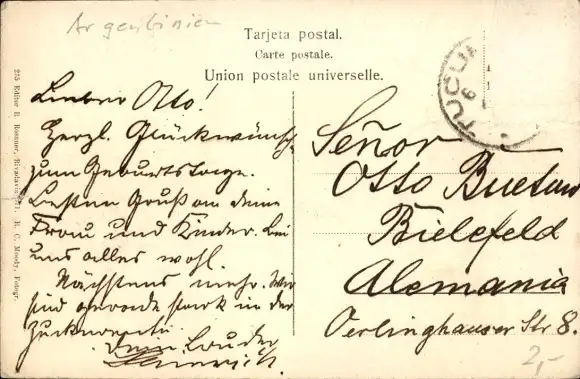 Argentinien
Tarjeta postal.
Carte postale.
Union postale universelle.
TUCU
6
Lieber Otto!
Herzl. Glückwünsch
zum Geburtstage.
Besten Gruß an deine
Frau und Kinder. Bei
uns alles wohl.
Nächstens mehr. Wir
sind gerade stark in der
Dein Bruder
Heinrich.
Señor
Otto
Bielefeld
Alemania
Oerlinghauser Str 8.
2,-
255 Editor R. Rosauer, Rivadavia 571. H. C. Moody, Fotogr.